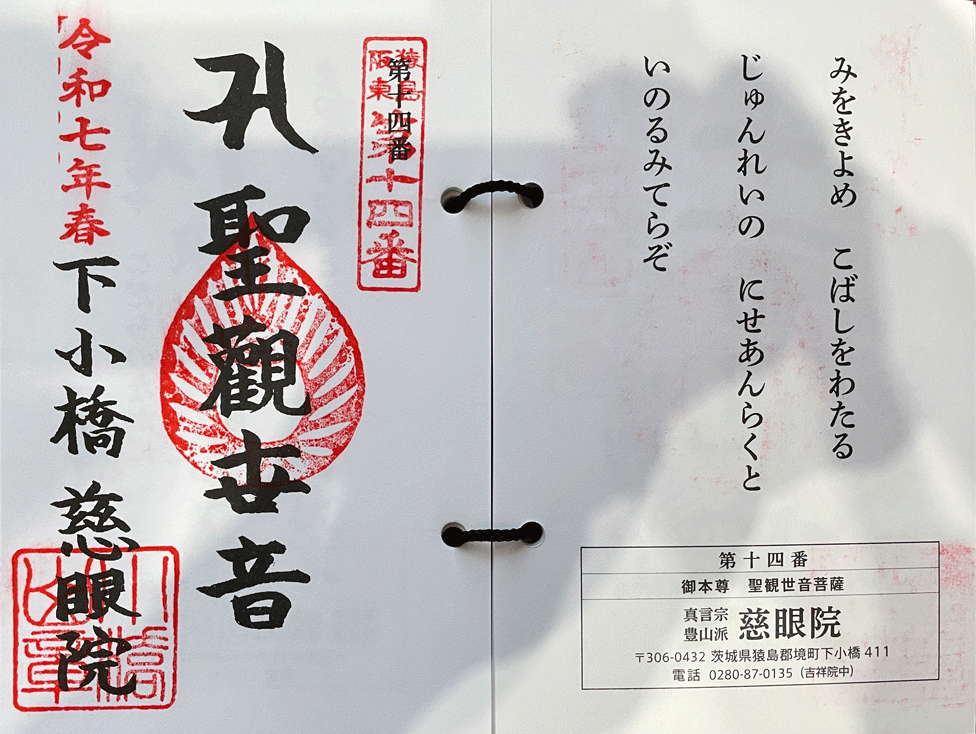 みをきよめ　こばしをわたる
じゅんれいの　にせあんらくと
いのるみてらぞ
第十四番
御本尊　聖観世音菩薩
真言宗
豊山派
慈眼院
〒306-0432 茨城県猿島郡境町下小橋 411
電話 0280-87-0135（吉祥院中）
猿島
阪東
第十四番
第十四番
聖觀世音
令和七年春
下小橋 慈眼院